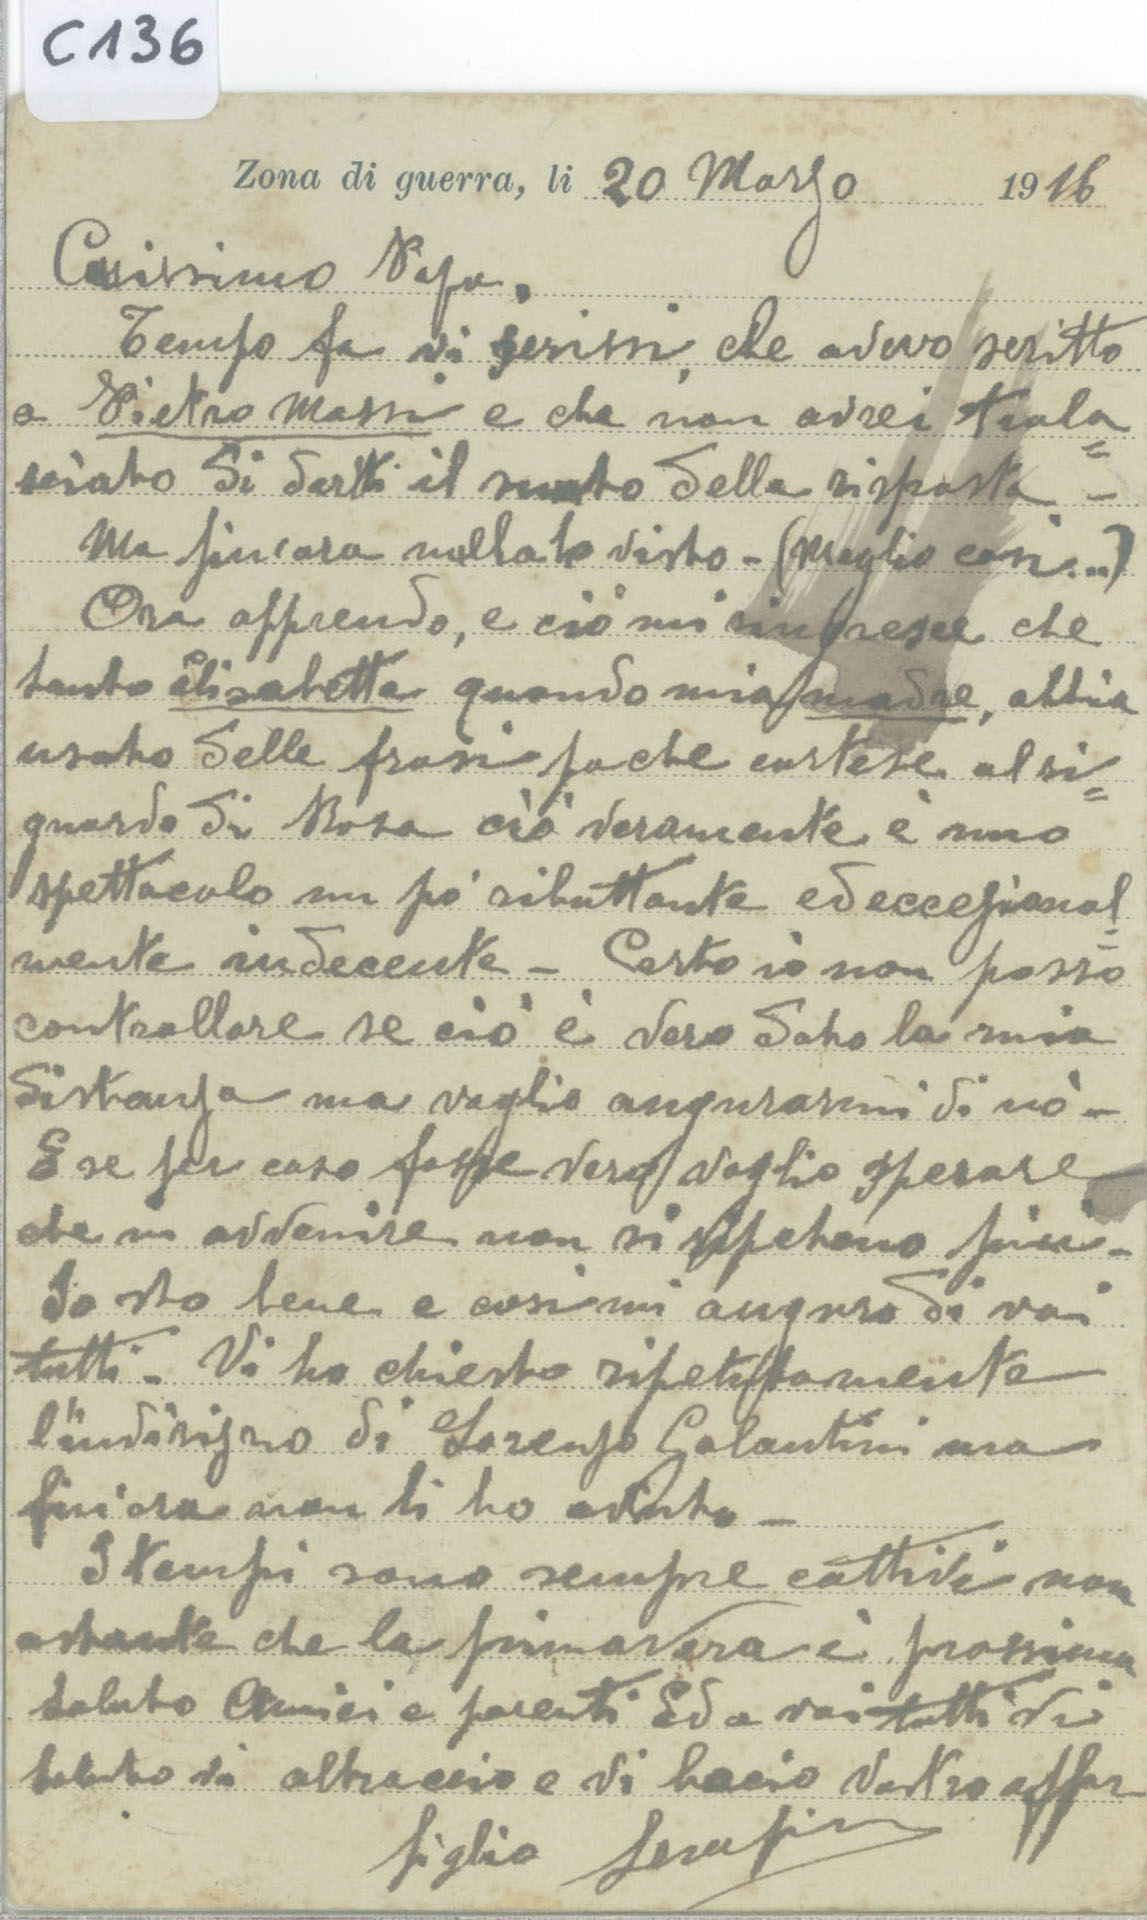 C136
Zona di guerra, li 20 Marzo 1916
Carissimo Papa,
Tempo fa vi scrissi, che avevo scritto
a Pietro Massi e che non avrei trala=
sciato di darti il sunto della risposta -
Ma fin'ora nulla ho visto - (meglio così...)
Ora apprendo, e ciò mi rincresce che
tanto Elisabetta quando mia madre, abbia
usato delle frasi poche cortese al ri=
guardo di Rosa ciò veramente è uno
spettacolo un pò ributtante ed eccezional=
mente indecente - Certo io non posso
controllare se ciò è vero dato la mia
distanza ma voglio augurarmi di nò -
E se per caso fosse vero voglio sperare
che in avvenire non si ripetono più -
Io sto bene e così mi auguro di voi
tutti - Vi ho chiesto ripetutamente
l'indirizzo di Lorenzo Galantini ma
fin'ora non li ho avuto -
I tempi sono sempre cattivi non
ostante che la primavera è prossima
saluto Amici e parenti Ed a voi tutti vi
saluto vi abbraccio e vi bacio vostro affez
figlio Serafino